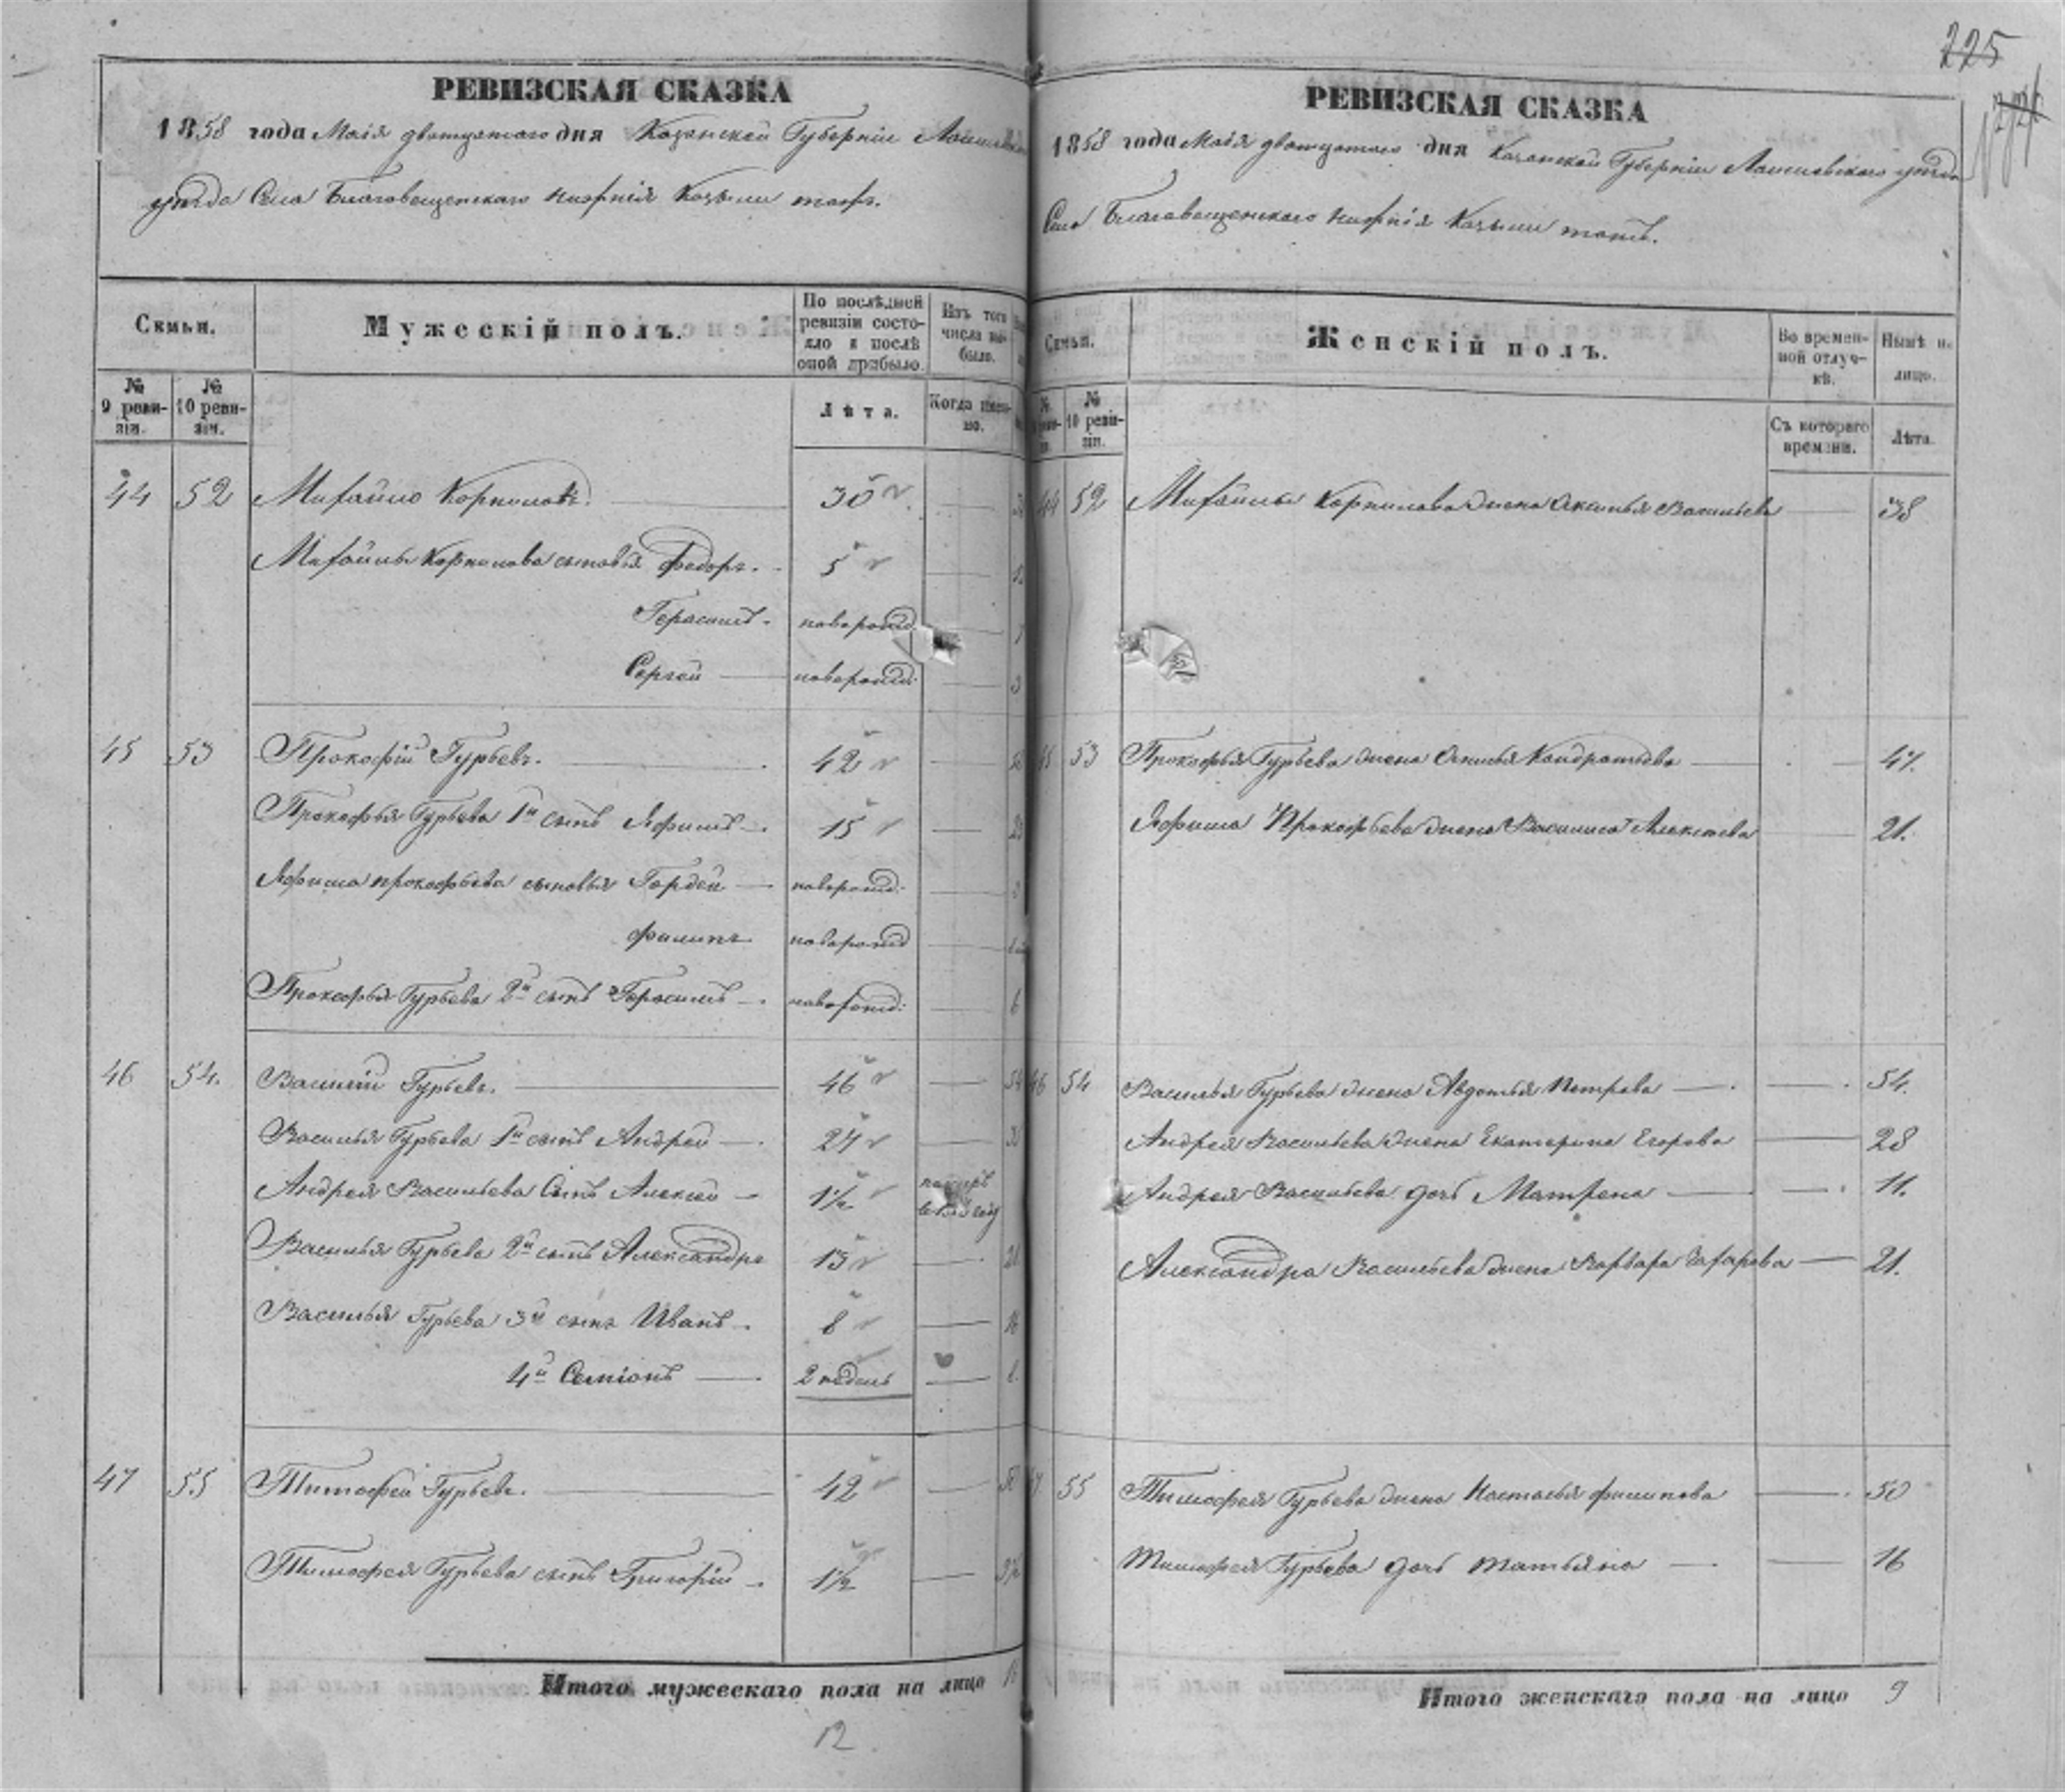 225
РЕВИЗСКАЯ СКАЗКА
1858 года Маія двотцатаго дня Казанской Губерніи
уезда Села Благовещенскаго нижнія
Семьи.
Мужескій полъ.
По послѣдней ревизіи состояло и послѣ оной прибыло.
Изъ того числа выбыло.
№ 9 ревизіи.
№ 10 ревизіи.
Лѣта.
Когда именно.
44 52 Михайло Корниловъ. 30
Михайлы Корнилова сыновья Федоръ. 5
Герасимъ. новорожд.
Сергей новорожд.
45 53 Прокофій Гурьевъ. 42
Прокофья Гурьева 1й сынъ Яфимъ 15
Яфима прокофьева сыновья Гордей новорожд.
филипъ новорожд
Прокофья Гурьева 2й сынъ Герасимъ новорожд:
46 54. Василій Гурьевъ. 46
Василья Гурьева 1й сынъ Андрей 27
Андрея Васильева Сынъ Алексей 1½
Василья Гурьева 2й сынъ Александръ 13
Василья Гурьева 3й сынъ Иванъ. 8
4й Семіонъ 2 недель
47 55 Тимофей Гурьевъ. 42
Тимофея Гурьева сынъ Григорій 1½ 9½
Итого мужескаго пола на лицо
12
РЕВИЗСКАЯ СКАЗКА
1858 года Маія двотцатаго дня Казанской Губерніи Лаишевскаго уезда
Села Благовещенскаго нижнія
Семьи.
Женскій полъ.
Во временной отлучкѣ.
Нынѣ на лицо.
№ 10 ревизіи.
Съ котораго времени.
Лѣта.
44 52 Михайлы Корнилова жена Аксинья Васильева 38
53 Прокофья Гурьева жена Аксинья Кондратьева 47.
Яфима Прокофьева жена Василиса Алексеева 21.
46 54 Василья Гурьева жена Авдотья Петрова 54.
Андрея Васильева жена Екатерина Егорова 28
Андрея Васильева дочь Матрена 11.
Александра Васильева жена Варвара Захарова 21.
47 55 Тимофея Гурьева жена Настасья филипова 50
Тимофея Гурьева дочь татьяна 16
Итого женскаго пола на лицо 9